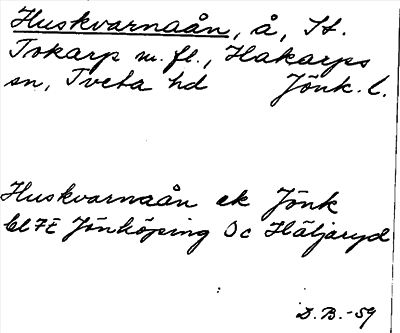 Huskvarnaån, å, St.
Tokarp m. fl., Hakarps
sn, Tveta hd Jönk. l.
Huskvarnaån ek Jönk
bl 7E Jönköping Öc Häljaryd
D. B. -59